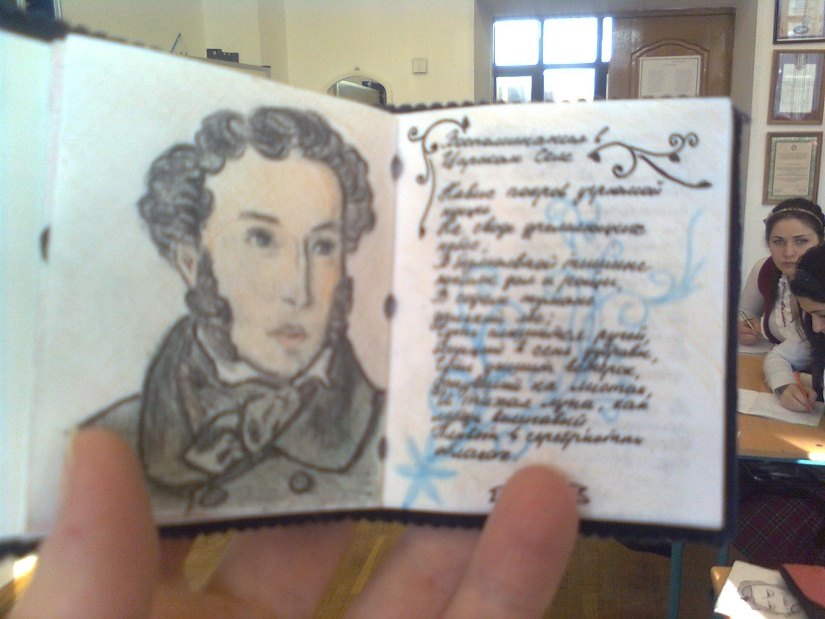 Воспоминания в
Царском Селе
Навис покров угрюмой
нощи
На своде дремлющих
небес
В безмолвной тишине
почили дол и рощи,
В седом тумане
дальний лес;
Чуть слышится ручей,
бегущий в сень дубравы,
Чуть дышит ветерок,
уснувший на листах,
И тихая луна, как
лебедь величавый
Плывёт в сребристых
облаках.